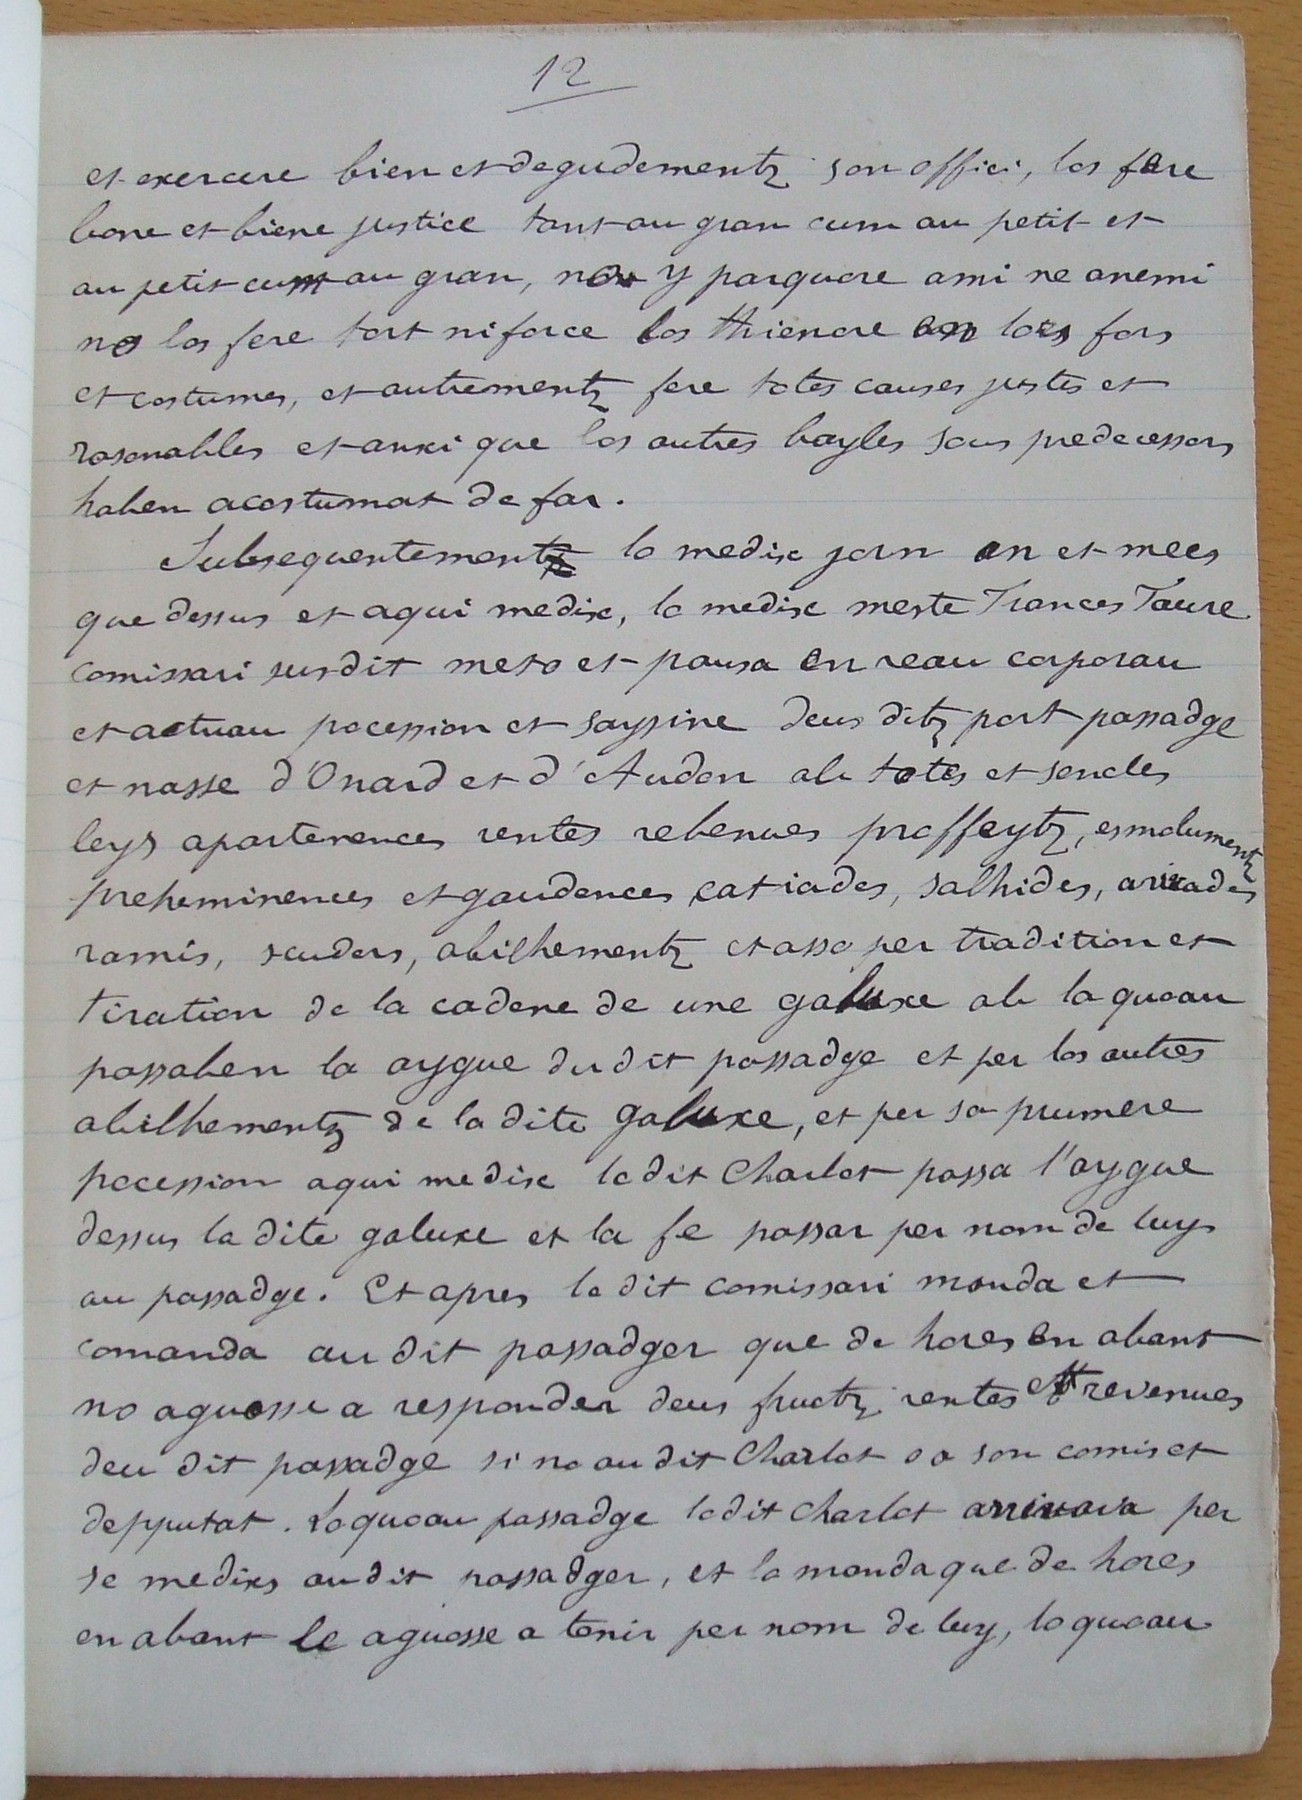 12
et exercere bien et degudementz son offici, los fere
bone et biene justice tant au gran cum au petit et
au petit cum au gran, non y parquere ami ne anemi
no los fere tort ni force los thienere en lors fors
et costumes, et autrementz fere totes causes justes et
rasonables et anxi que los autres bayles sous predecessors
haben acostumat de far.
Subsequentementz lo medix jorn an et mees
que dessus et aqui medix, lo medix meste Frances Faure
comissari susdit meto et pausa en reau corporau
et actuau pocession et sayssine deus ditz port passadge
et nasse d'Onard et d'Audon ab totes et sencles
leys apartenences rentes rebenues proffeytz, esmolumentz
preheminences et gaudences catiades, salhides, arivades
ramis, sauders, abilhementz et asso per tradition et
tiration de la cadene de une galuxe ab la quoau
passaben la aygue du dit passadge et per los autres
abilhementz de la dite galuxe, et per sa prumere
pocession aqui medix lo dit Charlot passa l'aygue
dessus la dite galuxe et la fe passar per nom de luy
au passadge. Et apres lo dit comissari manda et
comanda au dit passadger que de hores en abant
no aguosse a responder deus fructz rentes et revenues
deu dit passadge si no au dit Charlot o a son comis et
depputat. Lo quoau passadge lo dit Charlot arrivara per
se medixs au dit passadger, et lo manda que de hores
en abant le aguosse a tenir per nom de luy, lo quoau